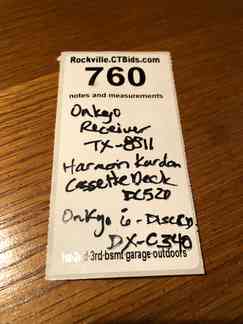 Rockville.CTBids.com
760
notes and measurements
Onkyo
Receiver
TX-8511
Harmon Kardon
Cassette Deck
DC520
Onkyo 6-Disc CD
DX-C340
3rd-bsmt garage outdoors